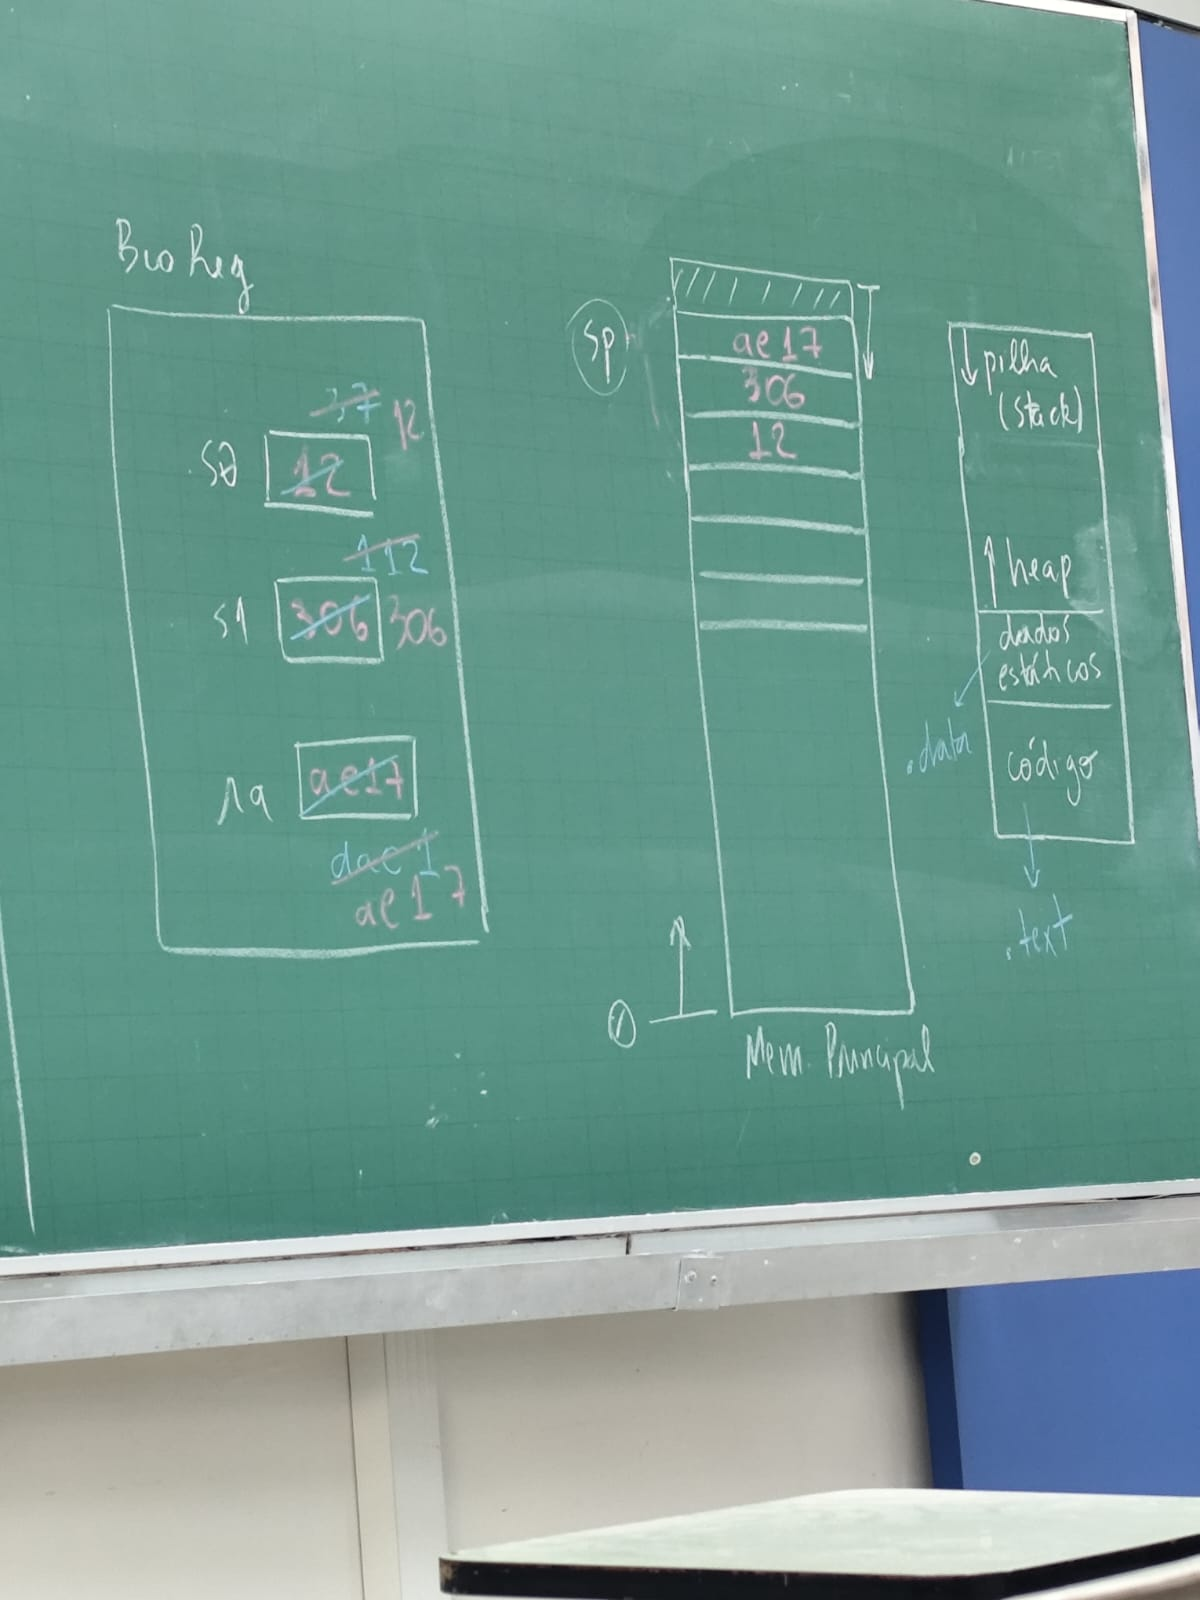 Bco Reg
37
12
s0 12
112
s1 306 306
ra ae17
dae1
ae17
sp
ae17
306
12
0
Mem. Principal
↓ pilha
(stack)
↑ heap
dados
estáticos
.data
código
.text